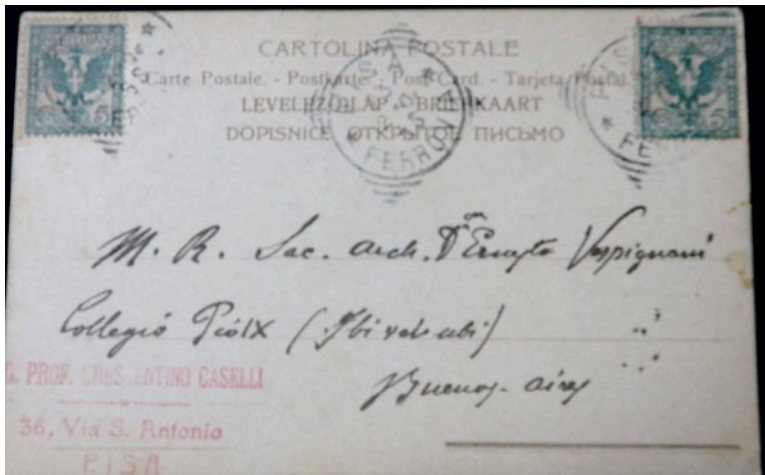 CARTOLINA POSTALE
Carte Postale. - Postkarte. - Post Card. - Tarjeta Postal.
LEVELEZŐLAP - BRIEFKAART
DOPISNICE ОТКРЫТОЕ ПИСЬМО
PISA
FERROVIA
M. R. Sac. Arch. Dⁿ Ernesto Vespignani
Collegio Pio IX (Ibi vel ubi)
Buenos-Aires
PROF. CRESCENTINO CASELLI
36, Via S. Antonio
PISA